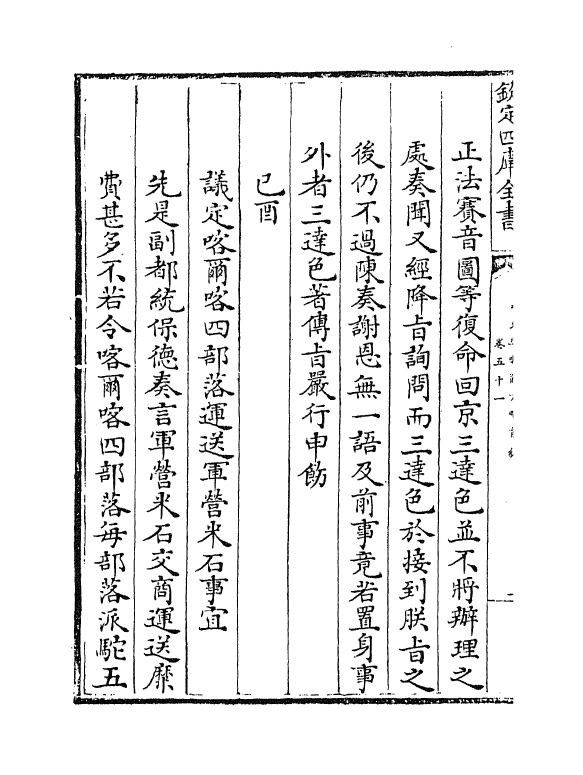 欽定四庫全書
卷五十一
二
正法賽音圖等復命回京三達色並不將辦理之
處奏聞又經降旨詢問而三達色於接到朕旨之
後仍不過陳奏謝恩無一語及前事竟若置身事
外者三達色著傳旨嚴行申飭
己酉
議定喀爾喀四部落運送軍營米石事宜
先是副都統保德奏言軍營米石交商運送糜
費甚多不若令喀爾喀四部落每部落派駝五